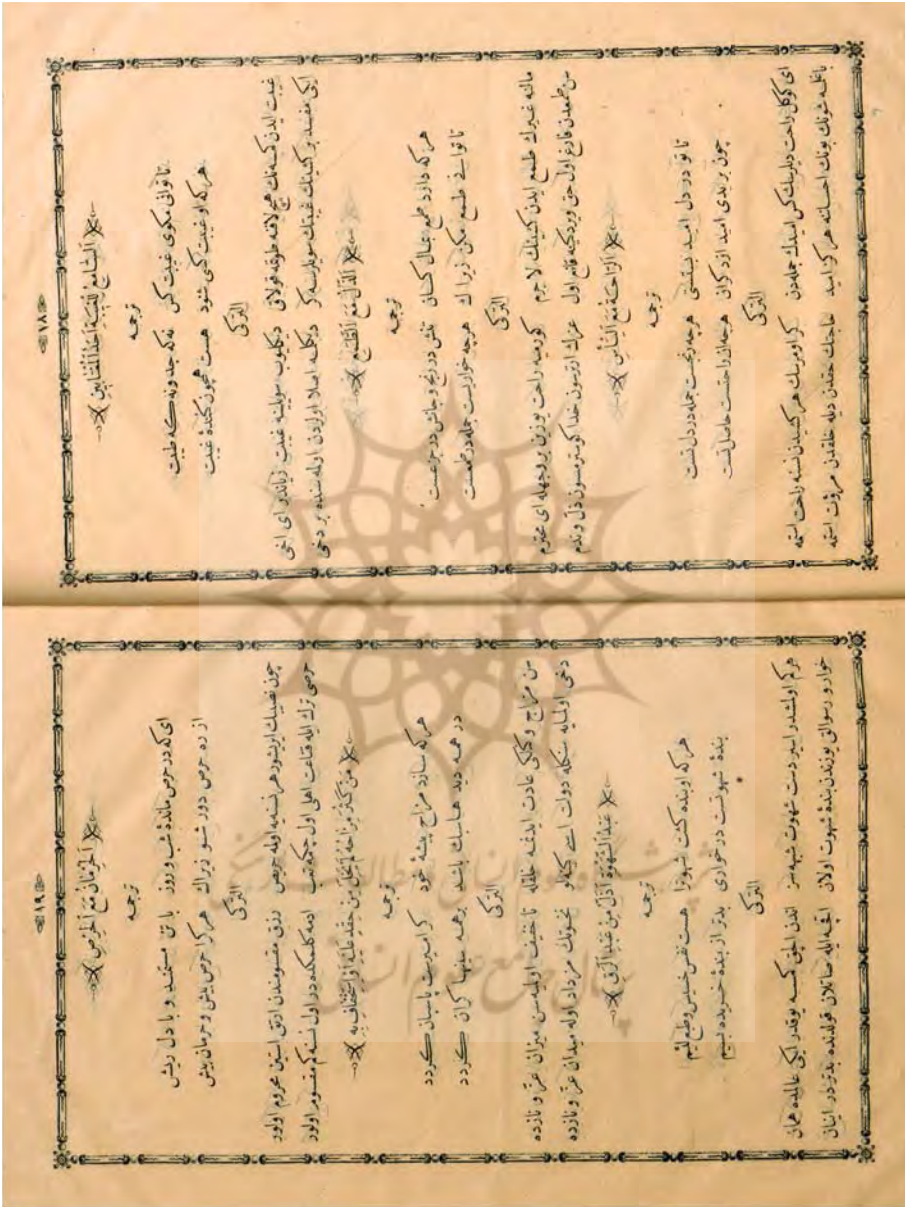 ﴿۱۸﴾
اَلسَّامِعُ لِلْغِيبَةِ اَحَدُ الْمُغْتَابِينَ
ترجمه
تا توانی مکوی غیبت کس نه که جد و نه که طیبت
هر که او غیبت کسی شنود هست همچون کنندۀ غیبت
التركی
غیبت ایدن کسه‌نك هیچ لافنه طوتمه قولاق دیكلیوب سویلینه غیبت زیاندر ای اخی
ایکی مفسد بر کشینك غیبتك سویلرسه کر دیكلمه اصلا اولاردن اوله سنده بر دخی
اَلذُّلُّ مَعَ الطَّمَعِ
ترجمه
هر که دارد طمع بمال کسان تنش در رنج و جانش در جزعست
تا توانی طمع مکن زیرا ك هر چه خواریست جمله در طمعست
التركی
مالنه غیرك طمع ایدن کشینك لاجرم کورمیه راحت یوزین بر وجهله ای محترم
من طمعدن فارغ اول حق ویردیکنه قانع اول عزك ارتورسون خدا کوسترمسون ذل و ندم
اَلرَّاحَةُ مَعَ الْيَأْسِ
ترجمه
تا تو در دل امید بنشستی هر چه رنجست جمله در دل تست
چون بریدی امید از دکران هر چه آن راحتست حاصل تست
التركی
ای کوکل راحت دیلرسك کس امیدك جمله‌دن کر اویرسك هر کشیدن نسنه راحت استمه
باغلمه شونك بونك احسانه هر کز امید حاجتك حقدن دیله خلقدن مروت استمه
﴿۱۹﴾
اَلْحِرْمَانُ مَعَ الْحِرْصِ
ترجمه
ای که در حرص ماندۀ شب و روز با تن مستمند و با دل ریش
از ره حرص دور شو زیراك هر کرا حرص بیش و حرمان بیش
التركی
چون نصیبك ایریشور هر نسنیه اوله حریص رزق مقسومندن ارتق استین محروم اولور
حرصی ترك ایله قناعت اهلی اول چکمه تعب ادمه کلمکده در اول نسنه کم مقسوم اولور
مَنْ كَثُرَ مِزَاحُهُ لَمْ يَخْلُ مِنْ حِقْدٍ عَلَيْهِ اَوِ اسْتِخْفَافٍ بِهِ
ترجمه
هر که سازد مزاح پیشۀ خود کر امیریست پاسبان کردد
در همه دیدها سبك باشد بر همه سینها کران کردد
التركی
من مزاج و کلکی عادت ایدنمه خلقله تا خفیف اولمیه سن میزان عز و نازده
دخی اولمایه سنکله دولت اسی کینه‌لو نخوتك مزداد اوله میدان عز و نازده
عَبْدُ الشَّهْوَةِ اَذَلُّ مِنْ عَبْدِ الرِّقِّ
ترجمه
هر که او بنده کشت شهوترا هست نفس خسیس و طبع لئیم
بندۀ شهوتست در خواری بدتر از بندۀ خریده بسیم
التركی
هر کم اولمشدر اسیر دست شهوت شبهه سز اندن الچق کسه یوقدر ایکی عالمده همان
خوار و رسوالق یوزندن بندۀ شهوت اولان اقچه ایله صاتلان قولدنده بدتردر اینان